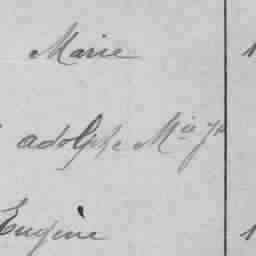 Marie
adolphe Mie Jh
Eugène